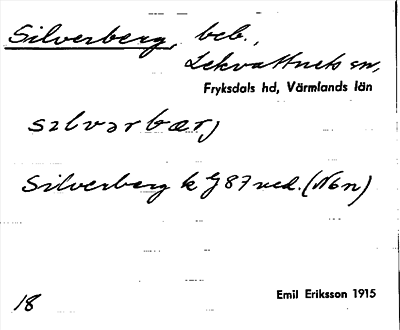 Silverberg, beb.,
Lekvattnets sn,
Fryksdals hd, Värmlands län
sɩlvərbærj
Silverberg k G 87 ved. (N6n)
18 Emil Eriksson 1915